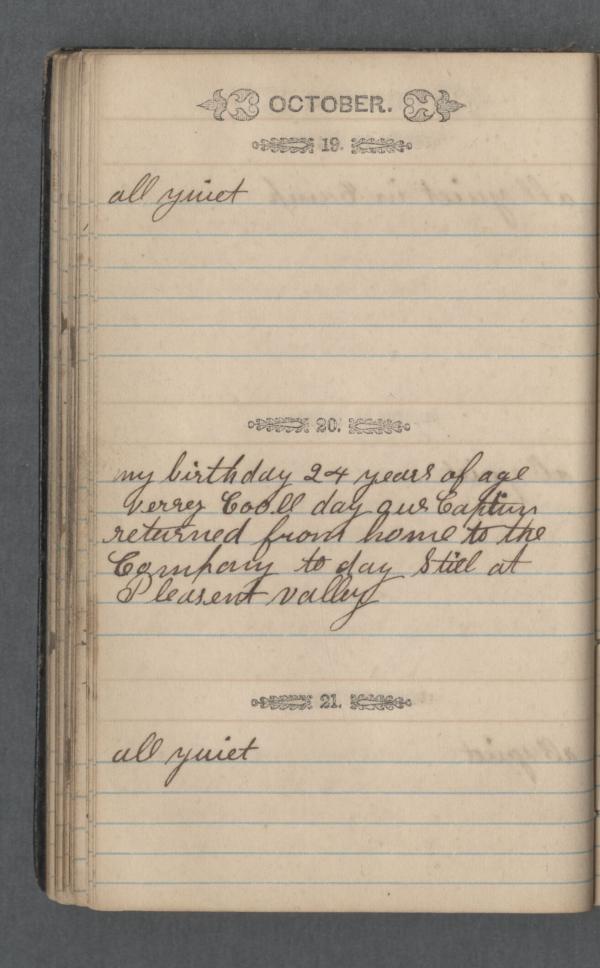 OCTOBER.
19.
all quiet
20.
my birthday 24 years of age
verrey Cooll day our Captiun
returned from home to the
Company to day Still at
Pleasent valley
21.
all quiet